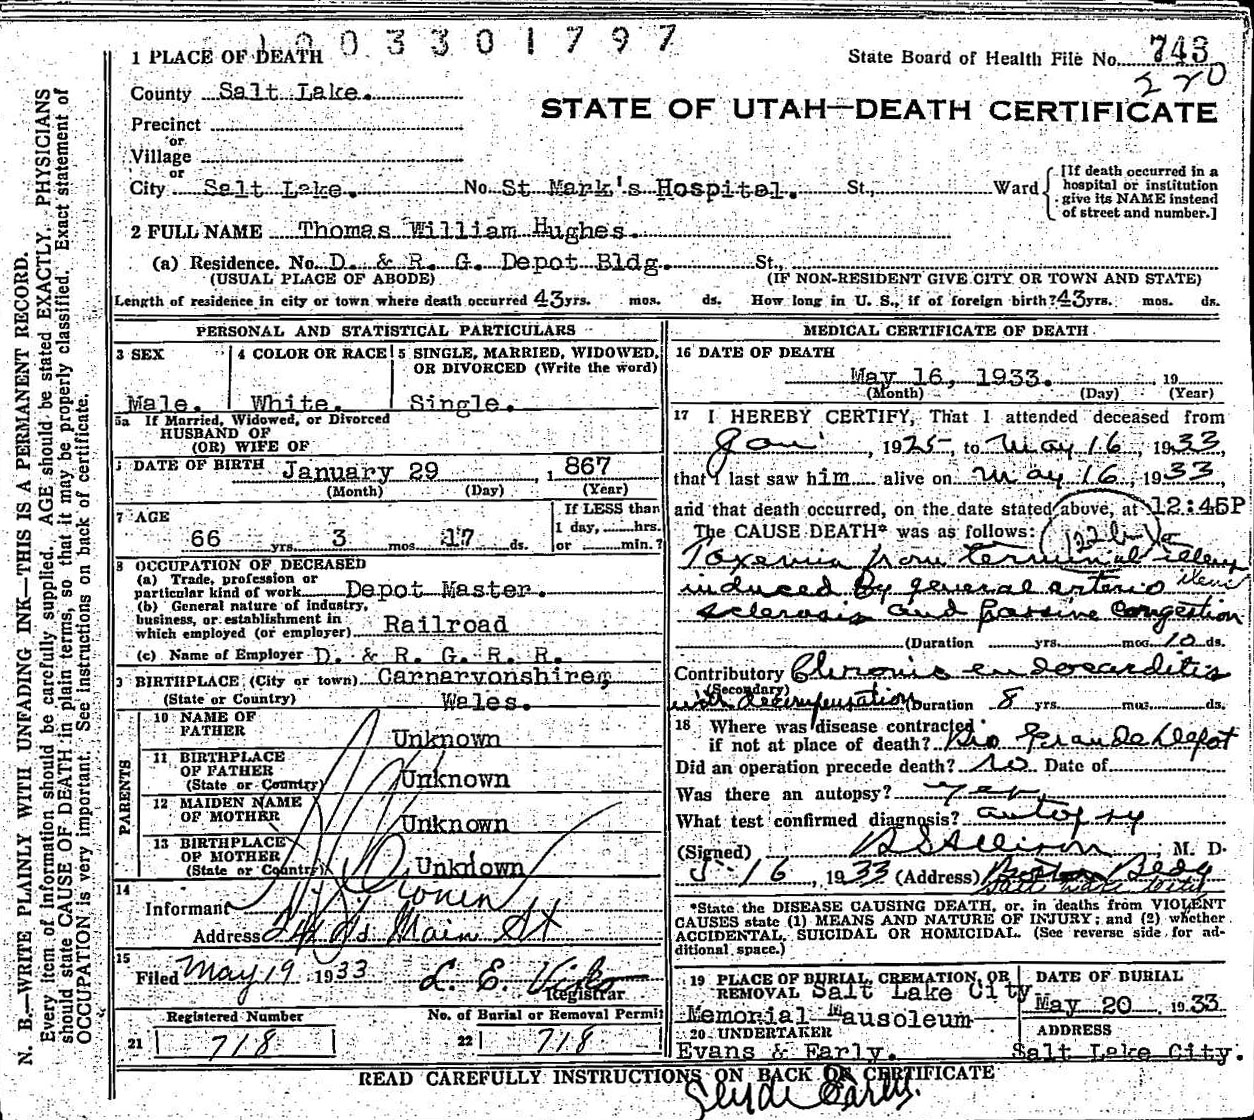 1003301797
1 PLACE OF DEATH
State Board of Health File No. 743
220
County Salt Lake.
STATE OF UTAH—DEATH CERTIFICATE
Precinct
or
Village
or
City Salt Lake. No. St Mark's Hospital. St., Ward
[If death occurred in a hospital or institution give its NAME instead of street and number.]
2 FULL NAME Thomas William Hughes.
(a) Residence. No. D. & R. G. Depot Bldg. St.,
(USUAL PLACE OF ABODE) (IF NON-RESIDENT GIVE CITY OR TOWN AND STATE)
Length of residence in city or town where death occurred 43 yrs. mos. ds. How long in U. S., if of foreign birth? 43 yrs. mos. ds.
PERSONAL AND STATISTICAL PARTICULARS
3 SEX
Male.
4 COLOR OR RACE
White.
5 SINGLE, MARRIED, WIDOWED, OR DIVORCED (Write the word)
Single.
5a If Married, Widowed, or Divorced
HUSBAND OF
(OR) WIFE OF
DATE OF BIRTH January 29, 1867
(Month) (Day) (Year)
7 AGE
66 yrs. 3 mos. 17 ds.
If LESS than
1 day, hrs.
or min.?
8 OCCUPATION OF DECEASED
(a) Trade, profession or
particular kind of work Depot Master.
(b) General nature of industry,
business, or establishment in
which employed (or employer) Railroad
(c) Name of Employer D. & R. G. R. R.
9 BIRTHPLACE (City or town) Carnarvonshire,
(State or Country) Wales.
PARENTS
10 NAME OF
FATHER Unknown
11 BIRTHPLACE
OF FATHER
(State or Country) Unknown
12 MAIDEN NAME
OF MOTHER Unknown
13 BIRTHPLACE
OF MOTHER
(State or Country) Unknown
14
Informant
Address Main St
15
Filed May 19 1933 L. E.
Registrar
Registered Number
21 718
No. of Burial or Removal Permit
22 718
MEDICAL CERTIFICATE OF DEATH
16 DATE OF DEATH
May 16, 1933. 19
(Month) (Day) (Year)
17 I HEREBY CERTIFY, That I attended deceased from
Jan, 1925, to May 16, 1933,
that I last saw him alive on May 16, 1933
and that death occurred, on the date stated above, at 12:45P
The CAUSE DEATH* was as follows: 122b
Toxemia from terminal
induced by general arterio
sclerosis and passive congestion
(Duration yrs. mos. 10 ds.
Contributory Chronic endocarditis
(Secondary)
with decompensation (Duration 8 yrs. mos. ds.
18 Where was disease contracted
if not at place of death? Rio Grande Depot
Did an operation precede death? No Date of
Was there an autopsy? Yes
What test confirmed diagnosis? autopsy
(Signed) Allison, M. D.
5-16, 1933 (Address) Boston Bldg
Salt Lake City
*State the DISEASE CAUSING DEATH, or, in deaths from VIOLENT
CAUSES state (1) MEANS AND NATURE OF INJURY; and (2) whether
ACCIDENTAL, SUICIDAL OR HOMICIDAL. (See reverse side for ad-
ditional space.)
19 PLACE OF BURIAL, CREMATION, OR
REMOVAL Salt Lake City
Memorial Mausoleum
DATE OF BURIAL
May 20, 1933
20 UNDERTAKER
Evans & Early.
ADDRESS
Salt Lake City.
READ CAREFULLY INSTRUCTIONS ON BACK OR CERTIFICATE
Clyde Early.
N. B.—WRITE PLAINLY WITH UNFADING INK—THIS IS A PERMANENT RECORD.
Every item of information should be carefully supplied. AGE should be stated EXACTLY. PHYSICIANS
should state CAUSE OF DEATH in plain terms, so that it may be properly classified. Exact statement of
OCCUPATION is very important. See instructions on back of certificate.